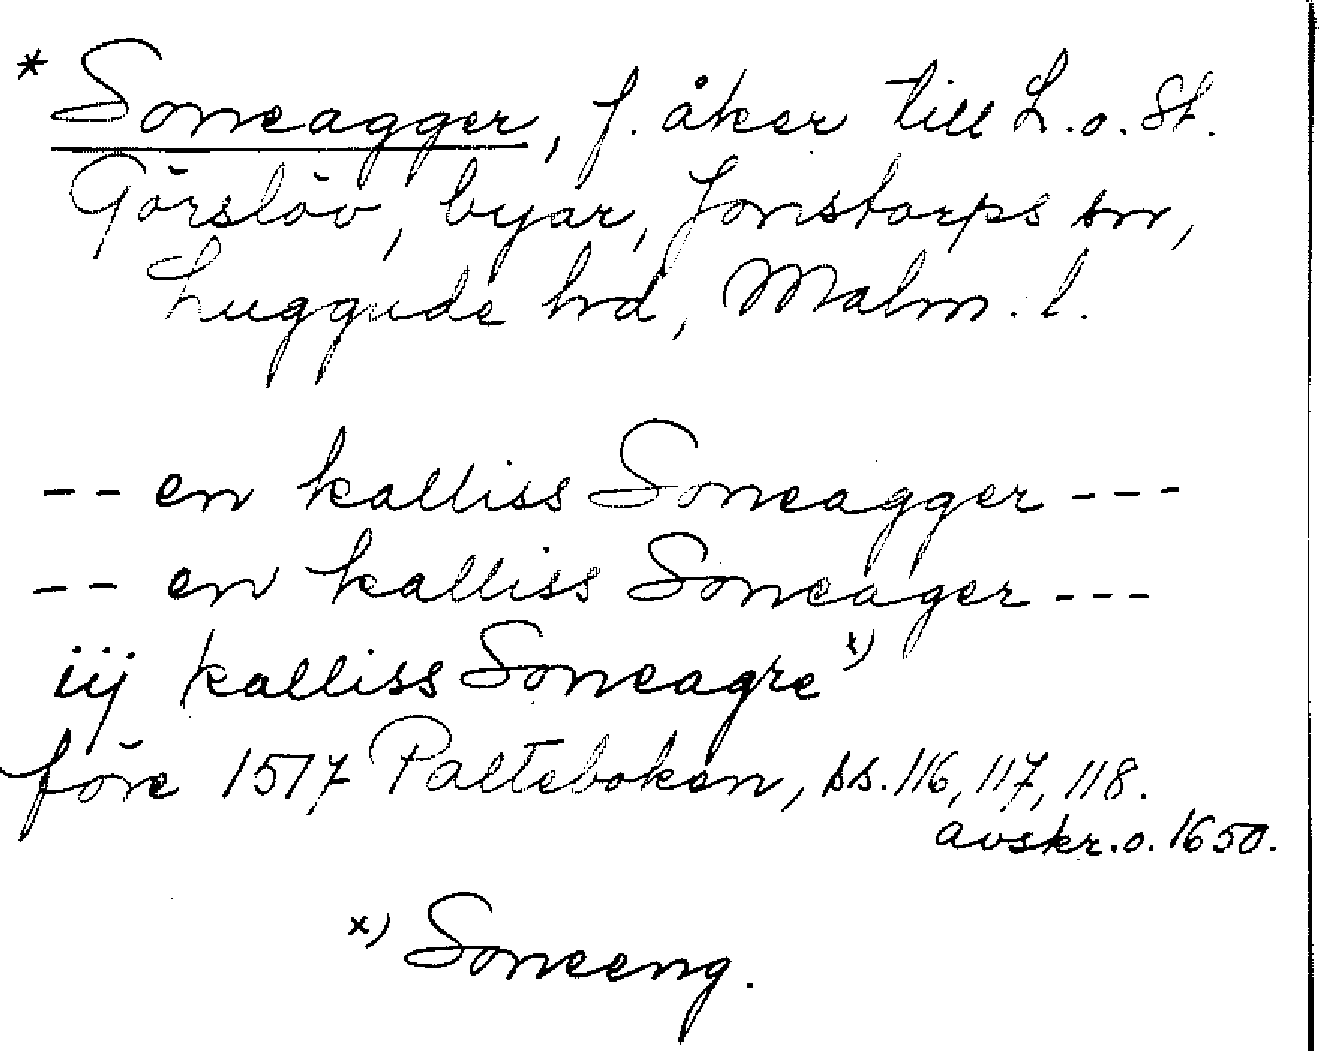 * Soneagger, f. åker till L. o. St.
Görslöv, byar, Jonstorps sn,
Luggude hd, Malm. l.
-- en kalliss Soneagger ---
-- en kalliss Soneager ---
iij kalliss Soneagre x)
före 1517 Palteboken, ss. 116, 117, 118.
avskr. o. 1650.
x) Soneeng.